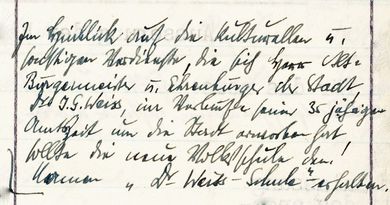 Im Hinblick auf die kulturellen u.
sonstigen Verdienste, die sich Herr Alt-
Bürgermeister u. Ehrenbürger der Stadt
Dr. J. G. Weiss, im Verlaufe seiner 35 jährigen
Amtszeit um die Stadt erworben hat
sollte die neue Volksschule den
Namen „Dr Weiss-Schule" erhalten.